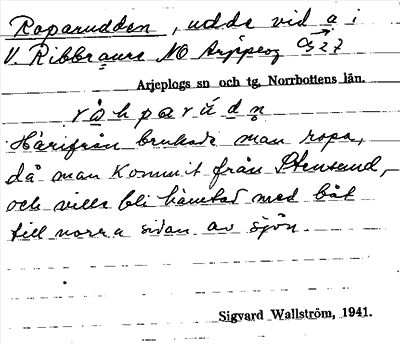 Roparudden, udde vid a i
V. Ribbraure NO Arjeplog C 27
Arjeplogs sn och tg, Norrbottens län.
råparúdn
Härifrån brukade man ropa,
då man kommit från Stensund,
och ville bli hämtad med båt
till norra sidan av sjön.
Sigvard Wallström, 1941.